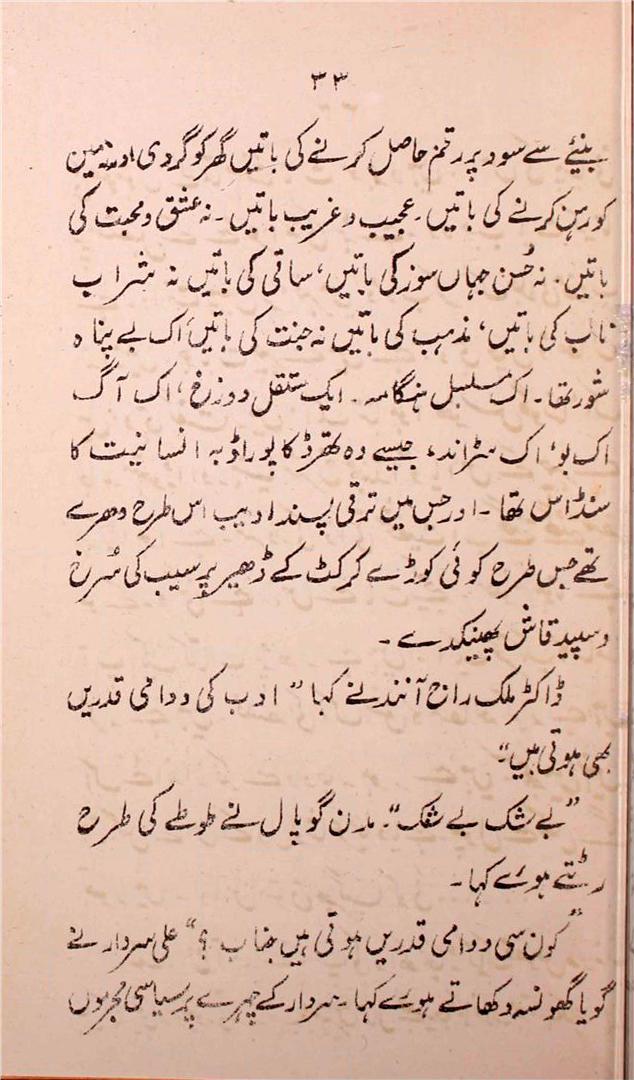 ۳۳
بنیئے سے سود پر رقم حاصل کرنے کی باتیں گھر کو گردی اور زمین
کو رہن کرنے کی باتیں۔ عجیب و غریب باتیں۔ نہ عشق و محبت کی
باتیں۔ نہ حُسن جہاں سوز کی باتیں، ساقی کی باتیں نہ شراب
ناب کی باتیں، مذہب کی باتیں نہ جنت کی باتیں اک بے پناہ
شور تھا۔ اک مسلسل ہنگامہ۔ ایک مستقل دوزخ، اک آگ
اک بو، اک سڑاند، جیسے وہ تھرڈ کا پورا ڈبہ انسانیت کا
سنڈاس تھا۔ اور جس میں ترقی پسند ادیب اس طرح دھرے
تھے جس طرح کوئی کوڑے کرکٹ کے ڈھیر پر سیب کی سُرخ
و سپید قاش پھینکدے۔
ڈاکٹر ملک راج آنند نے کہا ”ادب کی دوامی قدریں
بھی ہوتی ہیں“
”بے شک بے شک“۔ مدن گوپال نے طوطے کی طرح
رٹتے ہوئے کہا۔
”کون سی دوامی قدریں ہوتی ہیں جناب؟“ علی سردار نے
گویا گھونسہ دکھاتے ہوئے کہا۔ سردار کے چہرے پر سیاسی مجرموں